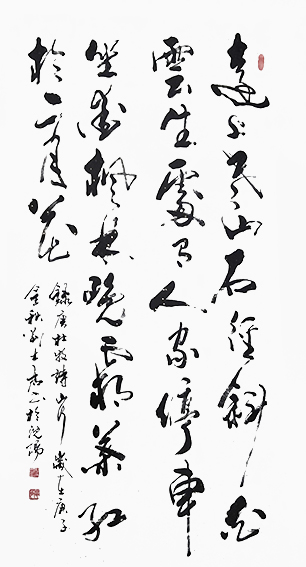 遠上寒山石徑斜白
雲生處有人家停車
坐愛楓林晚霜葉紅
於二月花
錄唐杜牧詩山行歲在庚子
金秋於沈陽